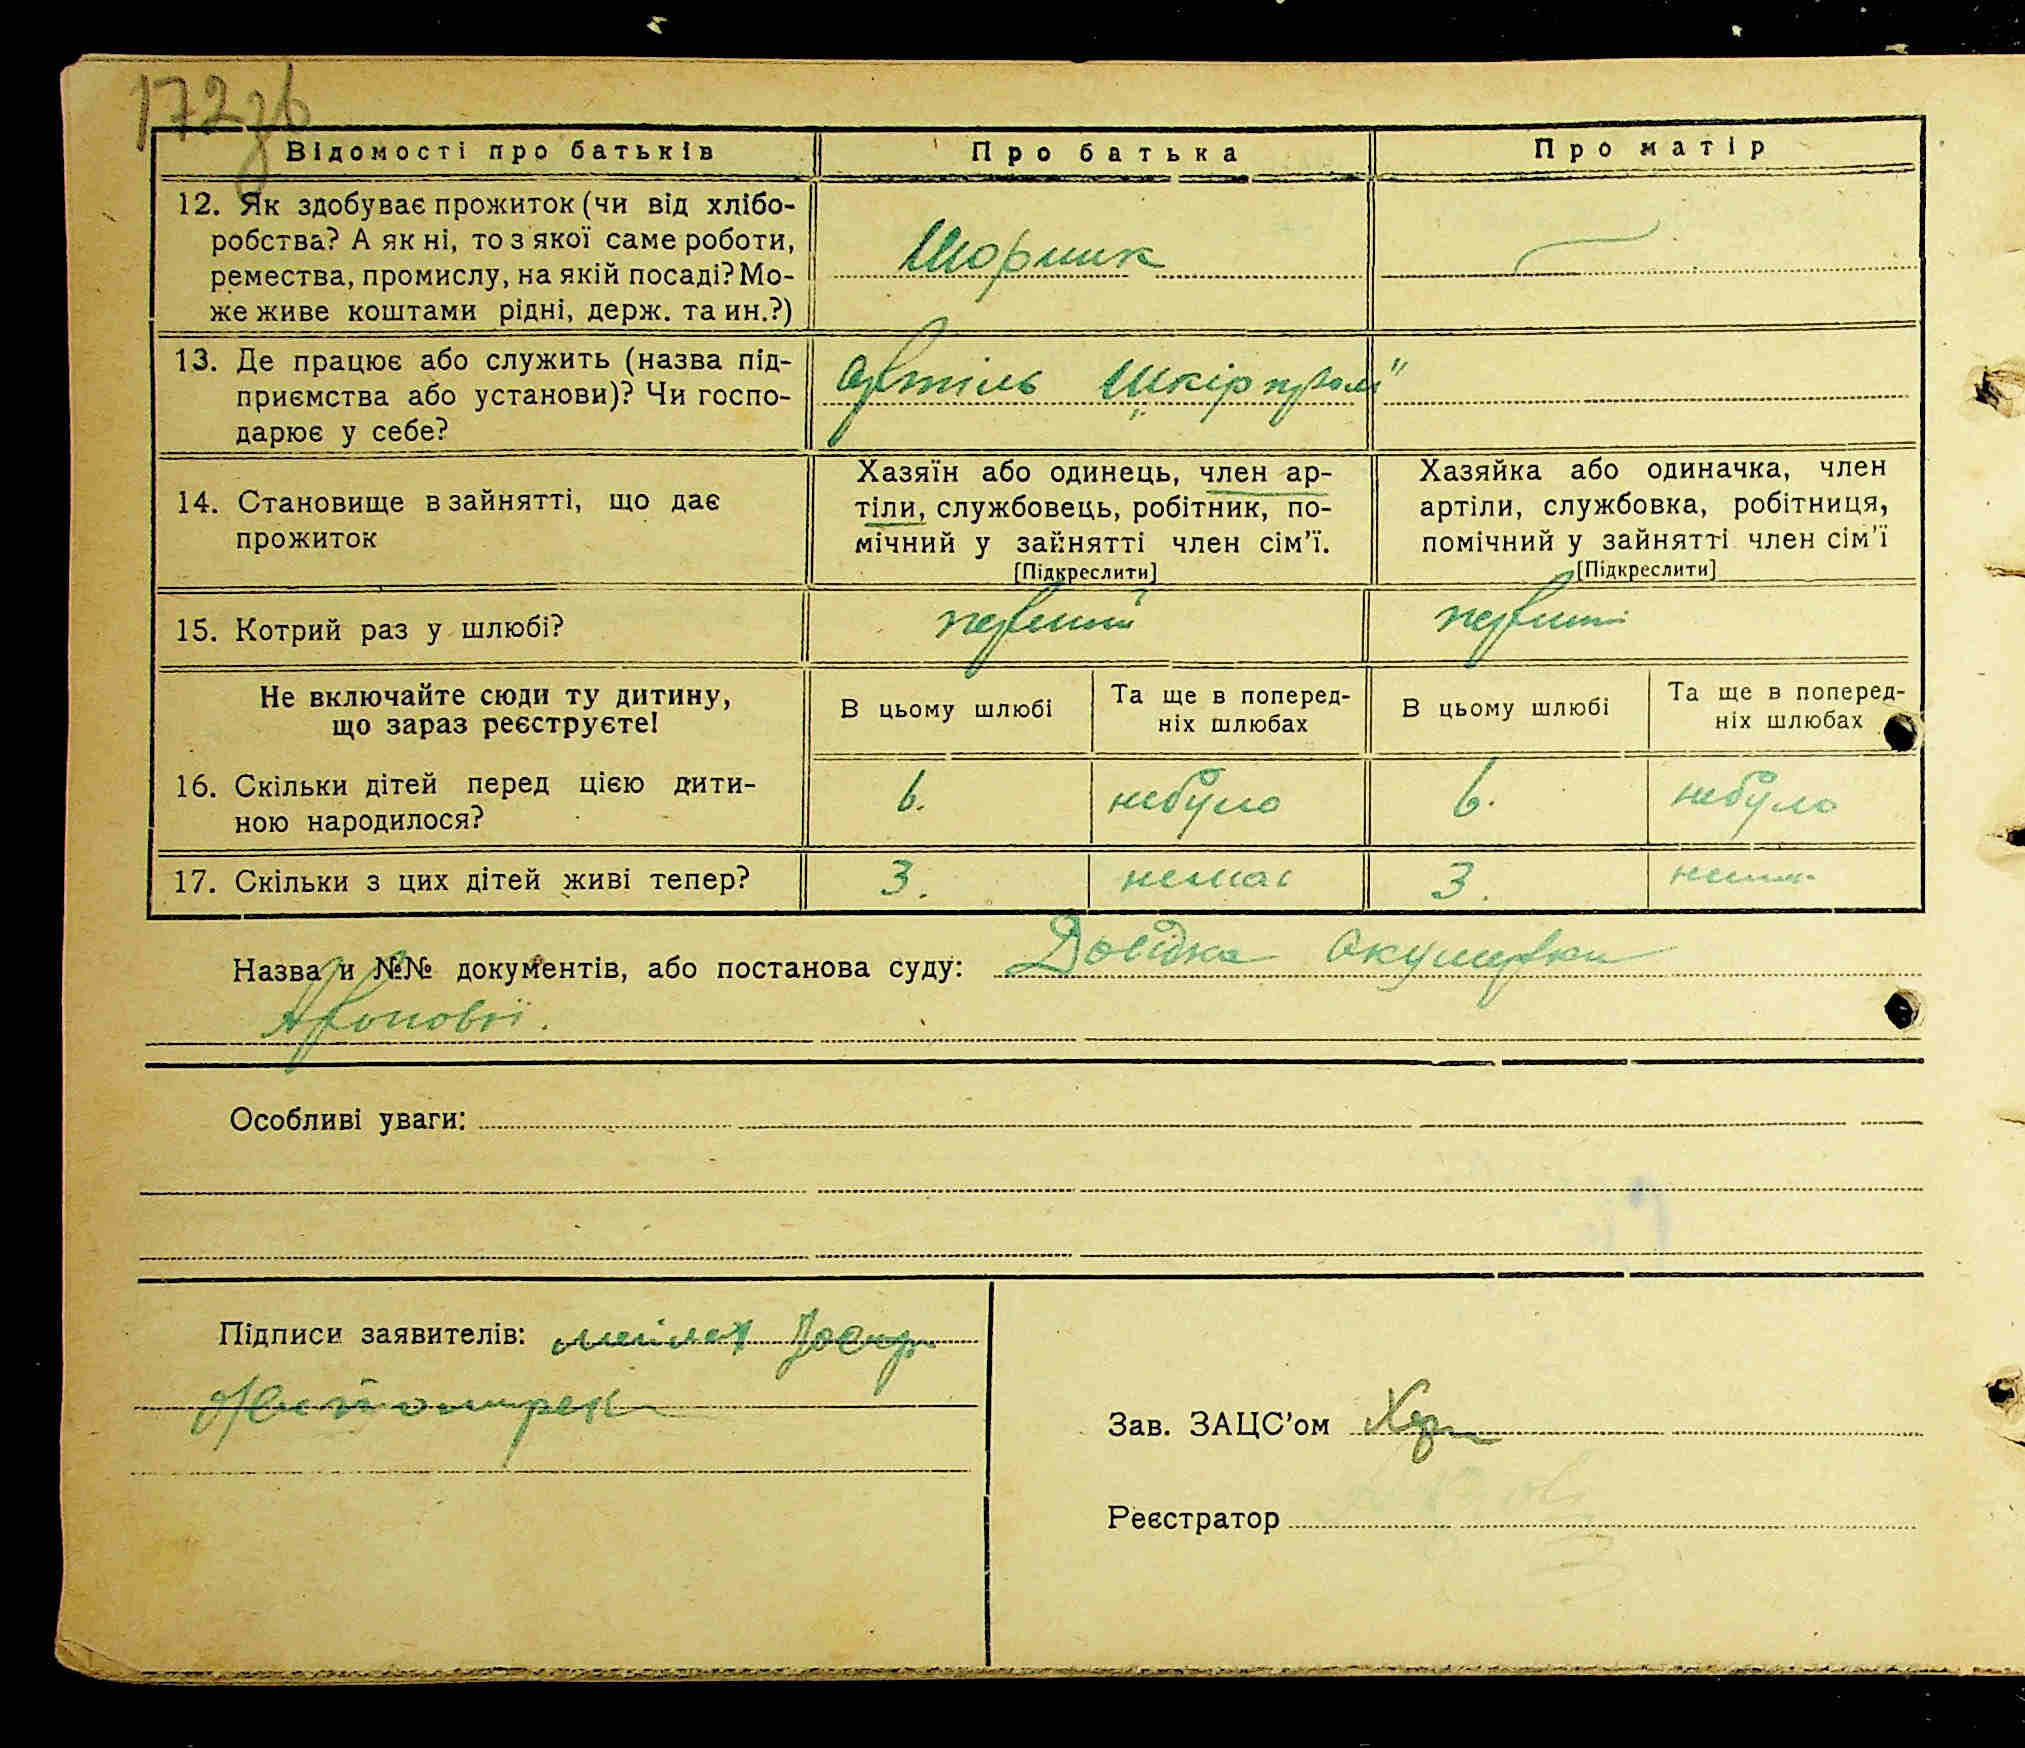 172зв
Відомості про батьків
Про батька
Про матір
12. Як здобуває прожиток (чи від хлібо-
робства? А як ні, то з якої саме роботи,
ремества, промислу, на якій посаді? Мо-
же живе коштами рідні, держ. та ин.?)
Шорник
13. Де працює або служить (назва під-
приємства або установи)? Чи госпо-
дарює у себе?
Артіль „Шкірпром"
14. Становище в зайнятті, що дає
прожиток
Хазяїн або одинець, член ар-
тіли, службовець, робітник, по-
мічний у зайнятті член сім'ї.
[Підкреслити]
Хазяйка або одиначка, член
артіли, службовка, робітниця,
помічний у зайнятті член сім'ї
[Підкреслити]
15. Котрий раз у шлюбі?
первий
первий
Не включайте сюди ту дитину,
що зараз реєструєте!
В цьому шлюбі
Та ще в поперед-
ніх шлюбах
В цьому шлюбі
Та ще в поперед-
ніх шлюбах
16. Скільки дітей перед цією дити-
ною народилося?
6.
небуло
6.
небуло
17. Скільки з цих дітей живі тепер?
3.
немає
3.
Назва и №№ документів, або постанова суду: Довідка акушерки
Особливі уваги:
Підписи заявителів:
Зав. ЗАЦС'ом
Реєстратор